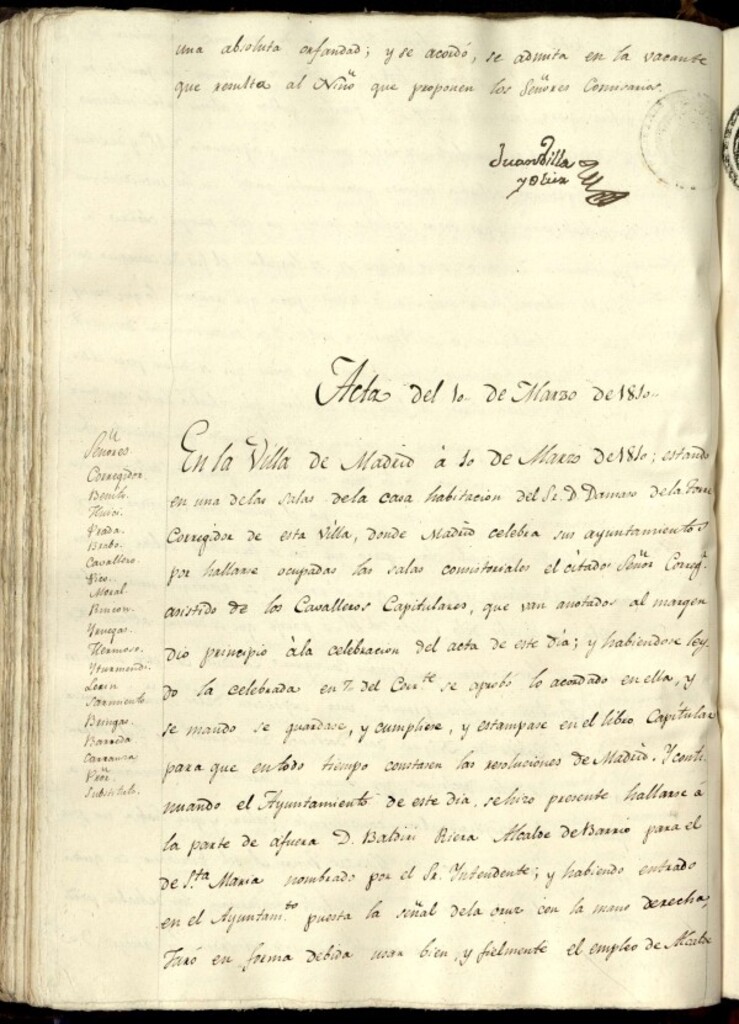 una absoluta orfandad; y se acordó, se admita en la vacante
que resulta al Niño que proponen los Señores Comisarios.
Juan Villa
y Olier
Acta del 10 de Marzo de 1810
Señores
Corregidor.
Prada.
Brabo.
Cavallero.
Pico.
Moral.
Rincon.
Yruegas.
Hermoso.
Yturmendi.
Leon
Sarmiento.
Bringas.
Barreda
Carranza
Substituto.
En la Villa de Madrid à 10 de Marzo de 1810; estando
en una de las salas de la casa habitacion del Sr. D. Damaso de la Torre
Corregidor de esta Villa, donde Madrid celebra sus ayuntamientos
por hallarse ocupadas las salas consistoriales el citado Señor Correg.r
asistido de los Cavalleros Capitulares, que van anotados al margen
dio principio à la celebracion del acta de este dia; y habiendose ley
do la celebrada en 7 del Corr.te se aprobó lo acordado en ella, y
se mando se guardase, y cumpliese, y estampase en el libro Capitular
para que en todo tiempo constasen las resoluciones de Madrid. Y conti
nuando el Ayuntamiento de este dia se hizo presente hallarse à
la parte de afuera D. Baldiri Riera Alcalde de Barrio para el
de S.ta Maria nombrado por el Sr. Yntendente; y habiendo entrado
en el Ayuntam.to puesta la señal de la cruz con la mano derecha,
Juró en forma debida usar bien, y fielmente el empleo de Alcalde